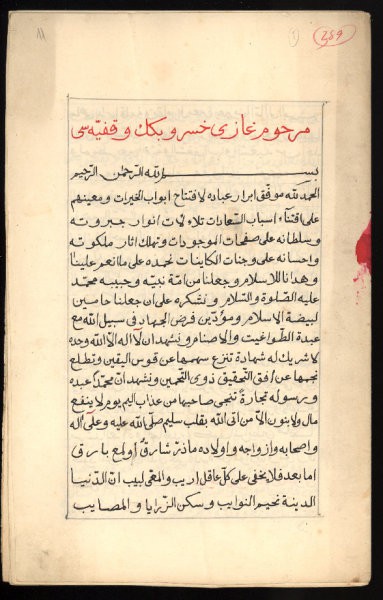 ٢٤٩
مرحوم غازى خسرو بكك وقفيه سى
بسم الله الرحمن الرحيم
الحمد لله موفق ابرار عباده لافتتاح ابواب الخيرات ومعينهم
على اقتناء اسباب السعادات تلاءلات انوار جبروته
وسلطانه على صفحات الموجودات وتهلك اثار ملكوته
واحسانه على وجنات الكاينات نحمده على ما انعم علينا
وهدانا للاسلام وجعلنا من امة نبيه وحبيبه محمد
عليه الصلوة والسلام ونشكره على ان جعلنا حامين
لبيضة الاسلام ومؤدين فرض الجهاد فى سبيل الله مع
عبدة الطواغيت والاصنام ونشهد ان لا اله الا الله وحده
لا شريك له شهادة تنزع سهمها عن قوس اليقين وتطلع
نجمها عن افق التحقيق ذوى التخمين ونشهد ان محمدا عبده
ورسوله تجارة تنجى صاحبها من عذاب اليم يوم لا ينفع
مال ولا بنون الا من اتى الله بقلب سليم صلى الله عليه وعلى آله
واصحابه وازواجه واولاده ما ذر شارق او لمع بارق
اما بعد فلا يخفى على كل عاقل اريب والمعى لبيب ان الدنيا
الدنية نحيم النوايب وسكن الرزايا والمصايب